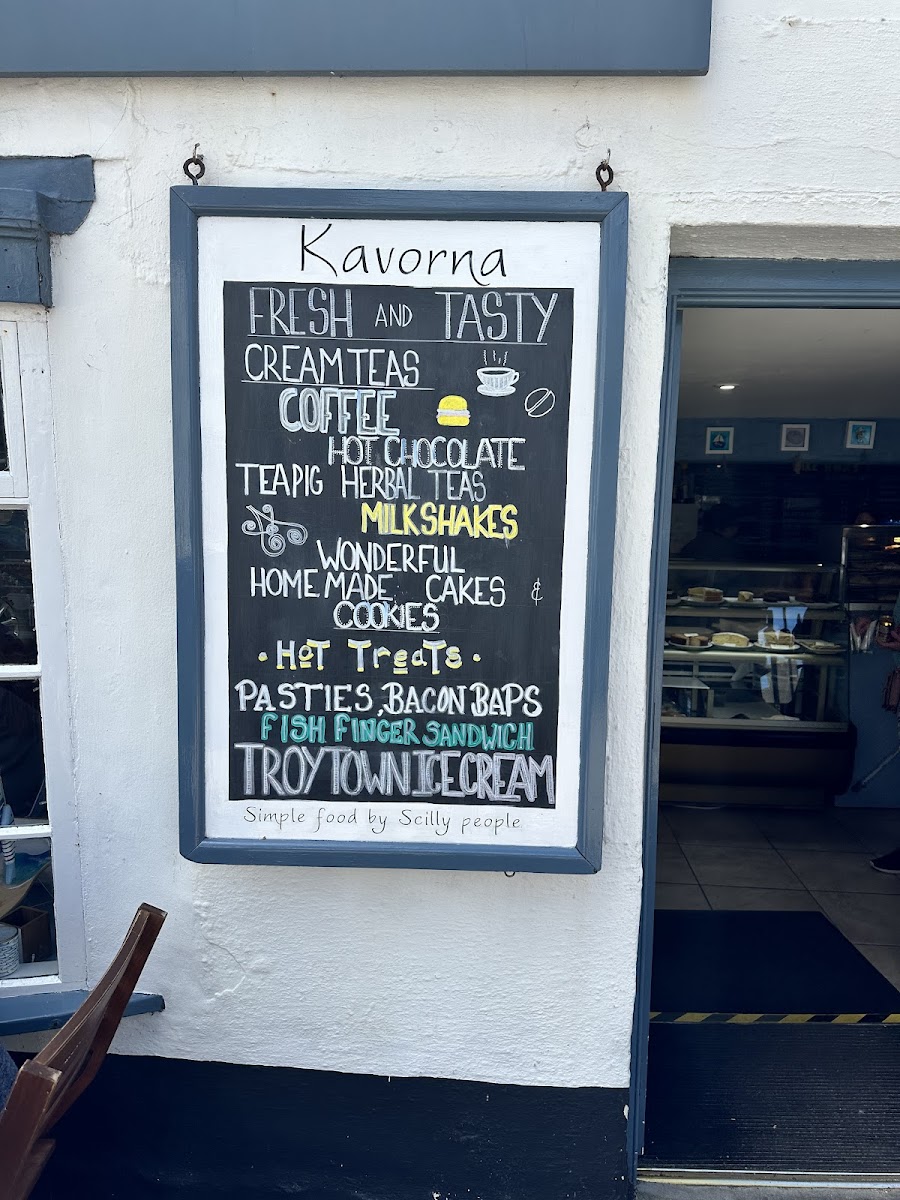 Kavorna
FRESH AND TASTY
CREAM TEAS
COFFEE
HOT CHOCOLATE
TEAPIG HERBAL TEAS
MILKSHAKES
WONDERFUL
HOME MADE CAKES &
COOKIES
• HOT TREATS •
PASTIES, BACON BAPS
FISH FINGER SANDWICH
TROYTOWN ICE CREAM
Simple food by Scilly people